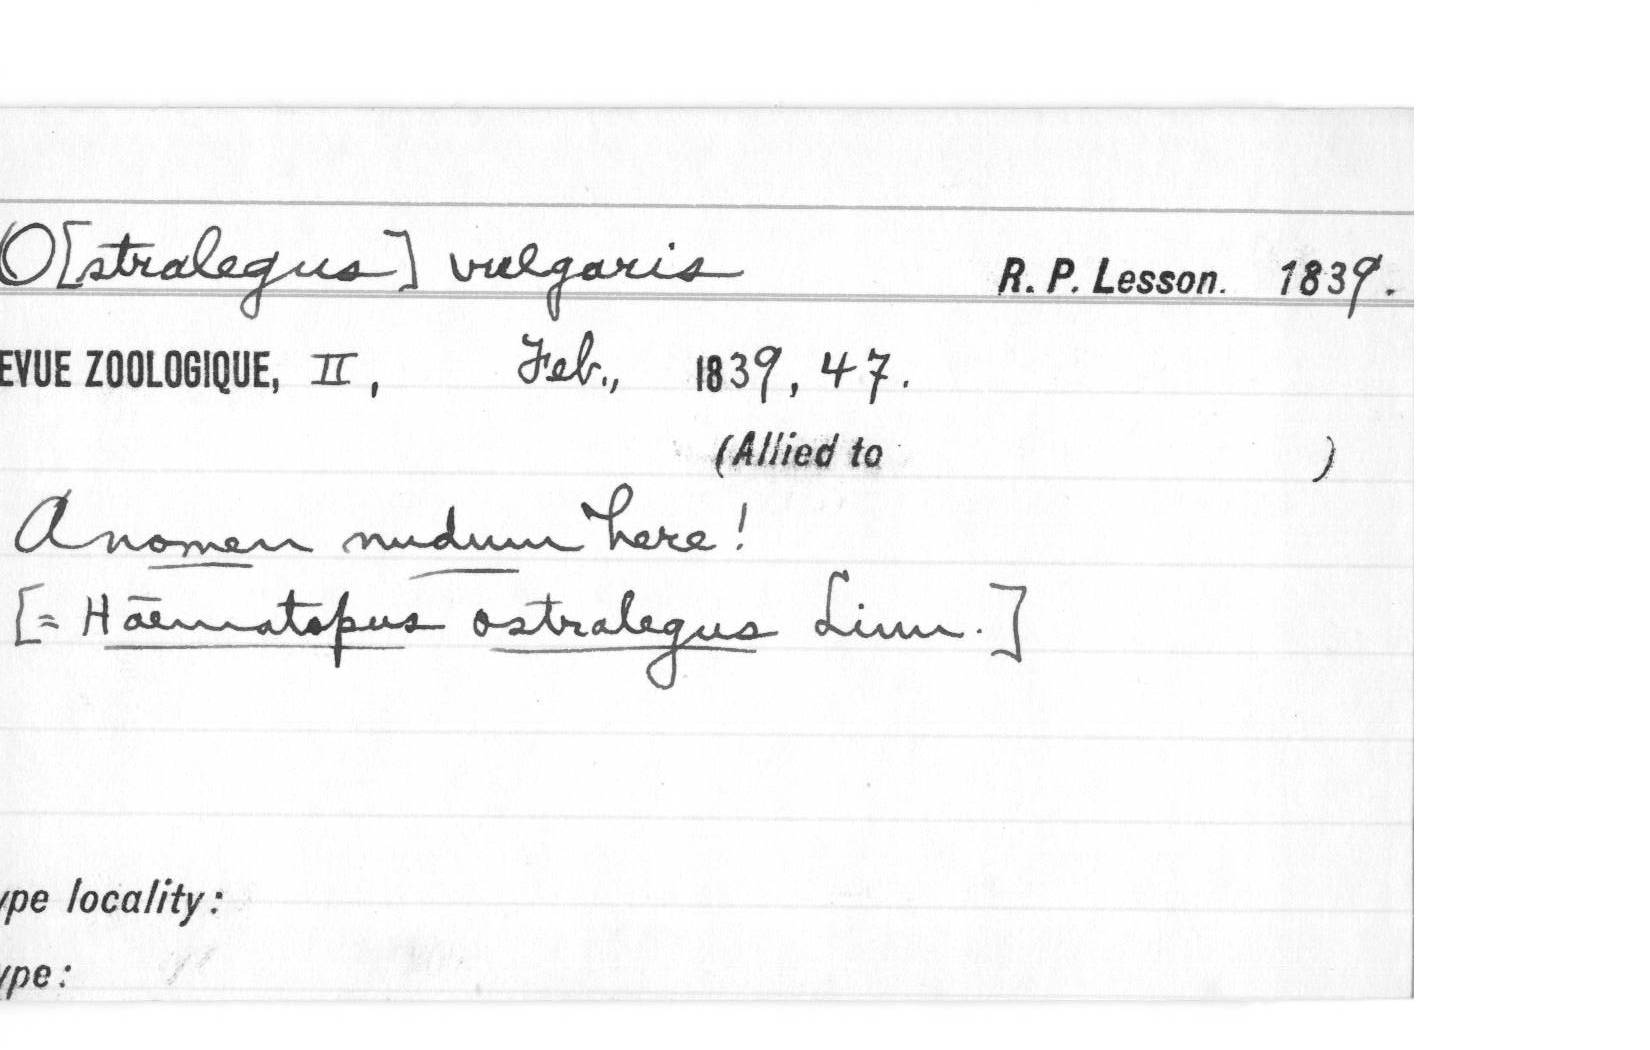 O[stralegus] vulgaris R. P. Lesson. 1839.
EVUE ZOOLOGIQUE, II, Feb., 1839, 47.
(Allied to )
A nomen nudum here!
[= Haematopus ostralegus Linn.]
ype locality:
ype: